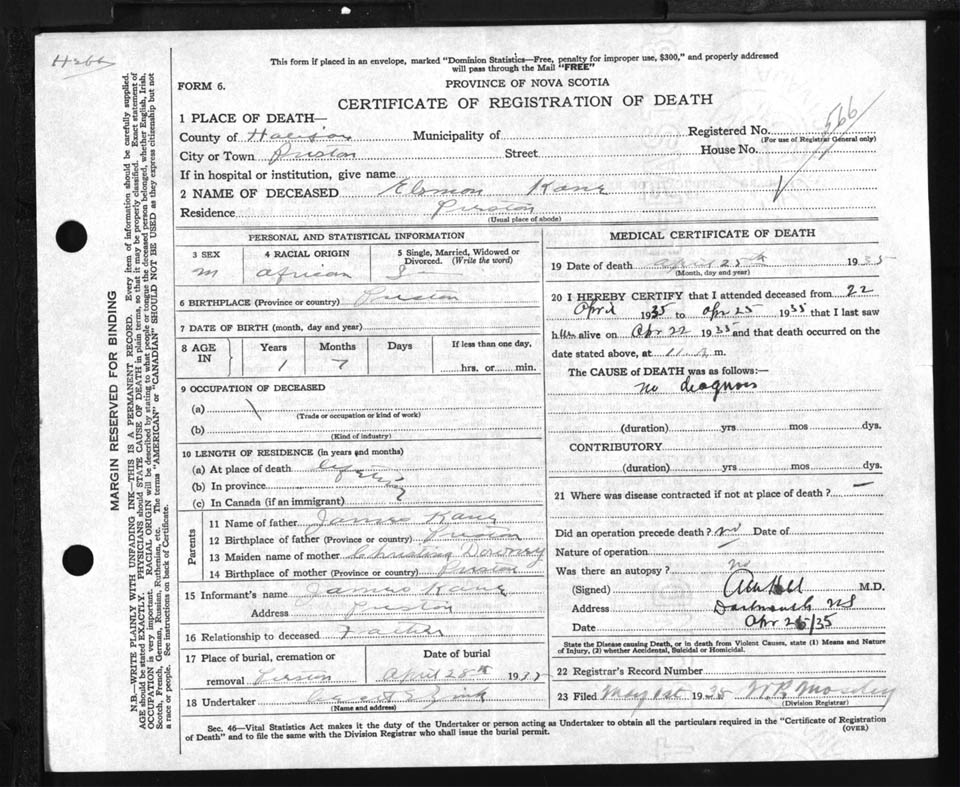 This form if placed in an envelope, marked "Dominion Statistics—Free, penalty for improper use, $300," and properly addressed
will pass through the Mail "FREE"
FORM 6.
PROVINCE OF NOVA SCOTIA
CERTIFICATE OF REGISTRATION OF DEATH
MARGIN RESERVED FOR BINDING
N.B.—WRITE PLAINLY WITH UNFADING INK—THIS IS A PERMANENT RECORD. Every item of information should be carefully supplied.
AGE should be stated EXACTLY. PHYSICIANS should STATE CAUSE OF DEATH in plain terms, so that it may be properly classified. Exact statement of
OCCUPATION is very important. RACIAL ORIGIN will be described by stating to what people or tongue the deceased person belonged, whether English, Irish,
Scotch, French, German, Russian, Ruthenian, etc. The terms "AMERICAN" or "CANADIAN" SHOULD NOT BE USED as they express citizenship but not
a race or people. See instructions on back of Certificate.
1 PLACE OF DEATH—
County of Halifax Municipality of Registered No. 566
(For use of Registrar General only)
City or Town Preston Street House No.
If in hospital or institution, give name
2 NAME OF DECEASED Kane
Residence Preston
(Usual place of abode)
PERSONAL AND STATISTICAL INFORMATION
3 SEX
m
4 RACIAL ORIGIN
African
5 Single, Married, Widowed or
Divorced. (Write the word)
S
6 BIRTHPLACE (Province or country) Preston
7 DATE OF BIRTH (month, day and year)
8 AGE
IN
Years Months Days If less than one day,
1 7 hrs. or min.
9 OCCUPATION OF DECEASED
(a) \
(Trade or occupation or kind of work)
(b)
(Kind of industry)
10 LENGTH OF RESIDENCE (in years and months)
(a) At place of death
(b) In province
(c) In Canada (if an immigrant)
Parents
11 Name of father James Kane
12 Birthplace of father (Province or country) Preston
13 Maiden name of mother Christina Downey
14 Birthplace of mother (Province or country) Preston
15 Informant's name James Kane
Address Preston
16 Relationship to deceased Father
17 Place of burial, cremation or Date of burial
removal Preston April 28th 1935
18 Undertaker
(Name and address)
MEDICAL CERTIFICATE OF DEATH
19 Date of death April 25th 1935
(Month, day and year)
20 I HEREBY CERTIFY that I attended deceased from 22
April 1935 to Apr 25 1935 that I last saw
him alive on Apr 22 1935 and that death occurred on
date stated above, at m.
The CAUSE of DEATH was as follows:—
no diagnosis
(duration) yrs mos dys.
CONTRIBUTORY
(duration) yrs mos dys.
21 Where was disease contracted if not at place of death? —
Did an operation precede death? no Date of
Nature of operation
Was there an autopsy? no
(Signed) M.D.
Address Dartmouth NS
Date Apr 26/35
State the Disease causing Death, or in death from Violent Causes, state (1) Means and Nature
of Injury, (2) whether Accidental, Suicidal or Homicidal.
22 Registrar's Record Number
23 Filed May 1st 1935
(Division Registrar)
Sec. 46—Vital Statistics Act makes it the duty of the Undertaker or person acting as Undertaker to obtain all the particulars required in the "Certificate of Registration
of Death" and to file the same with the Division Registrar who shall issue the burial permit.
(OVER)